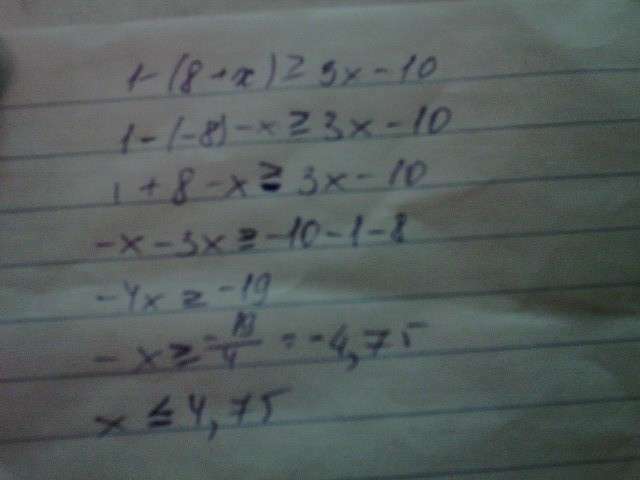 1-(8+x) ≥ 3x-10
1-(-8)-x ≥ 3x-10
1+8-x ≥ 3x-10
-x-3x ≥ -10-1-8
-4x ≥ -19
-x ≥ -19/4 = -4,75
x ≤ 4,75